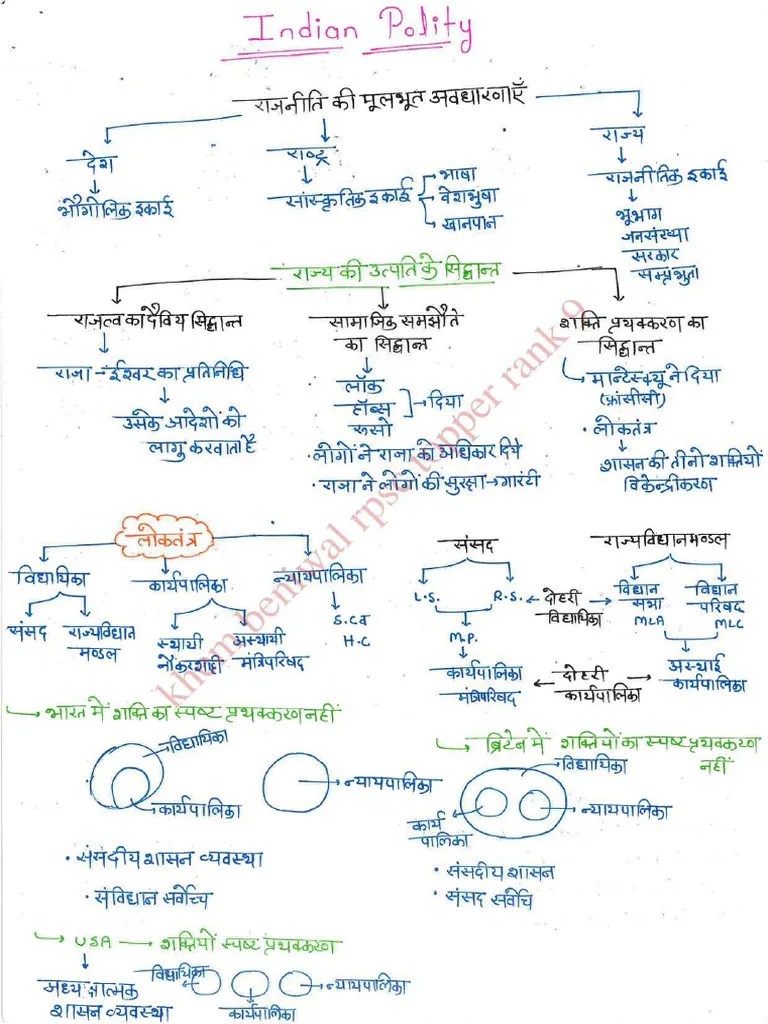 Indian Polity
राजनीति की मूलभूत अवधारणाएँ
देश
भौगोलिक इकाई
राष्ट्र
सांस्कृतिक इकाई
भाषा
वेशभुषा
खानपान
राज्य
राजनीतिक इकाई
भूभाग
जनसंख्या
सरकार
सम्प्रभुता
राज्य की उत्पति के सिद्धान्त
राजत्व का दैविय सिद्धान्त
राजा - ईश्वर का प्रतिनिधि
उसके आदेशों को
लागु करवाता है
सामाजिक समझौते
का सिद्धान्त
लॉक
हॉब्स
रूसो
दिया
• लोगों ने राजा को अधिकार दिये
• राजा ने लोगों की सुरक्षा → गारंटी
शक्ति प्रथक्करण का
सिद्धान्त
मान्टेस्क्यू ने दिया
(फ्रांसीसी)
• लोकतंत्र
शासन की तीनो शक्तियों
विकेन्द्रीकरण
लोकतंत्र
विधायिका
संसद
राज्यविधान
मण्डल
कार्यपालिका
स्थायी
नौकरशाही
अस्थायी
मंत्रिपरिषद
न्यायपालिका
S.C
H.C
संसद
L.S.
R.S.
M.P.
कार्यपालिका
मंत्रिपरिषद
दोहरी
विधायिका
दोहरी
कार्यपालिका
राज्यविधानमण्डल
विधान
सभा
MLA
विधान
परिषद
MLC
अस्थाई
कार्यपालिका
भारत में शक्ति का स्पष्ट प्रथक्करण नहीं
विधायिका
कार्यपालिका
न्यायपालिका
• संसदीय शासन व्यवस्था
• संविधान सर्वोच्च
ब्रिटेन में शक्तियों का स्पष्ट प्रथक्करण
नहीं
विधायिका
कार्य
पालिका
न्यायपालिका
• संसदीय शासन
• संसद सर्वोच
USA → शक्तियों स्पष्ट प्रथक्करण
अध्यक्षात्मक
शासन व्यवस्था
विधायिका
कार्यपालिका
न्यायपालिका
khem beniwal rpsc topper rank 9